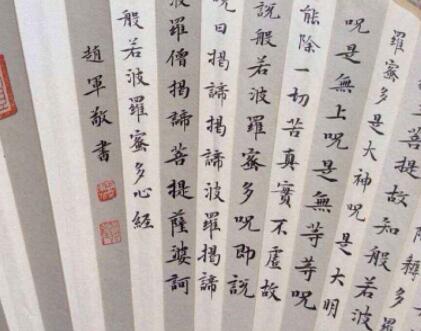 耨多
菩提故知般若波
羅蜜多是大神呪是大明
呪是無上呪是無等等呪
能除一切苦真實不虛故
說般若波羅蜜多呪即說
呪曰揭諦揭諦波羅揭諦
波羅僧揭諦菩提薩婆訶
般若波羅蜜多心經
趙軍敬書